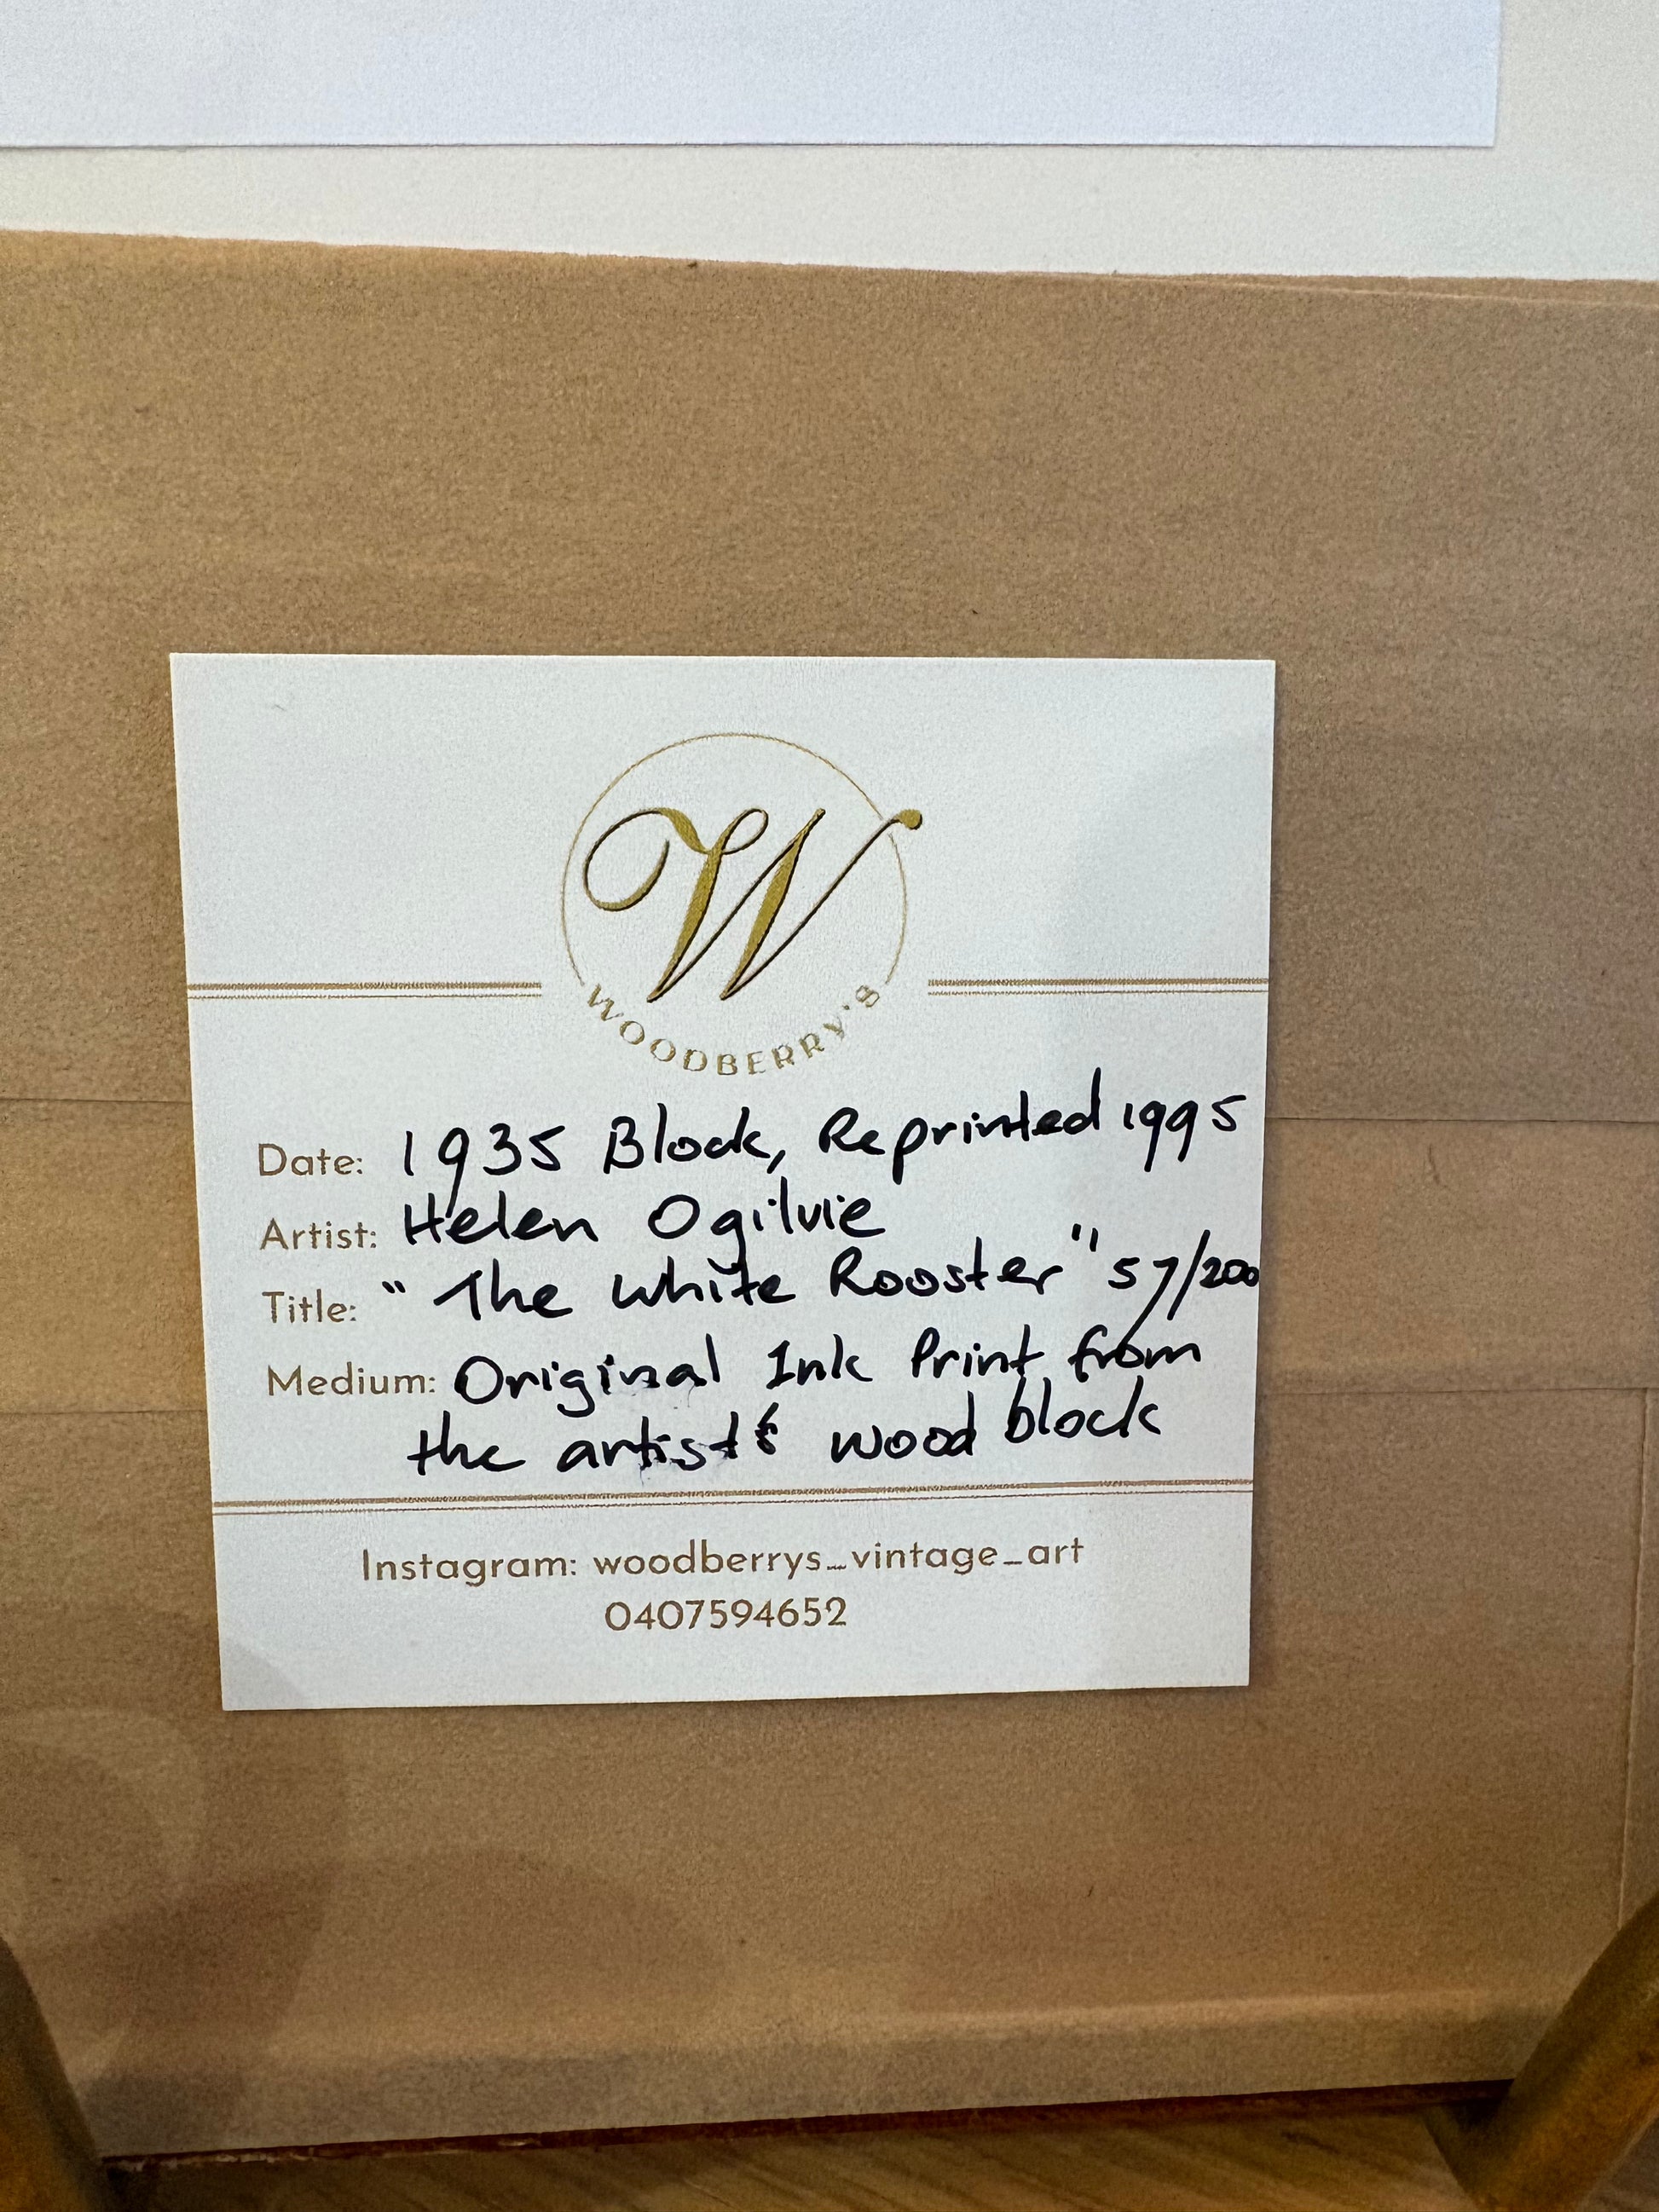 W
WOODBERRY'S
Date: 1935 Block, Reprinted 1995
Artist: Helen Ogilvie
Title: "The White Rooster" 57/200
Medium: Original Ink Print from
the artist's wood block
Instagram: woodberrys_vintage_art
0407594652